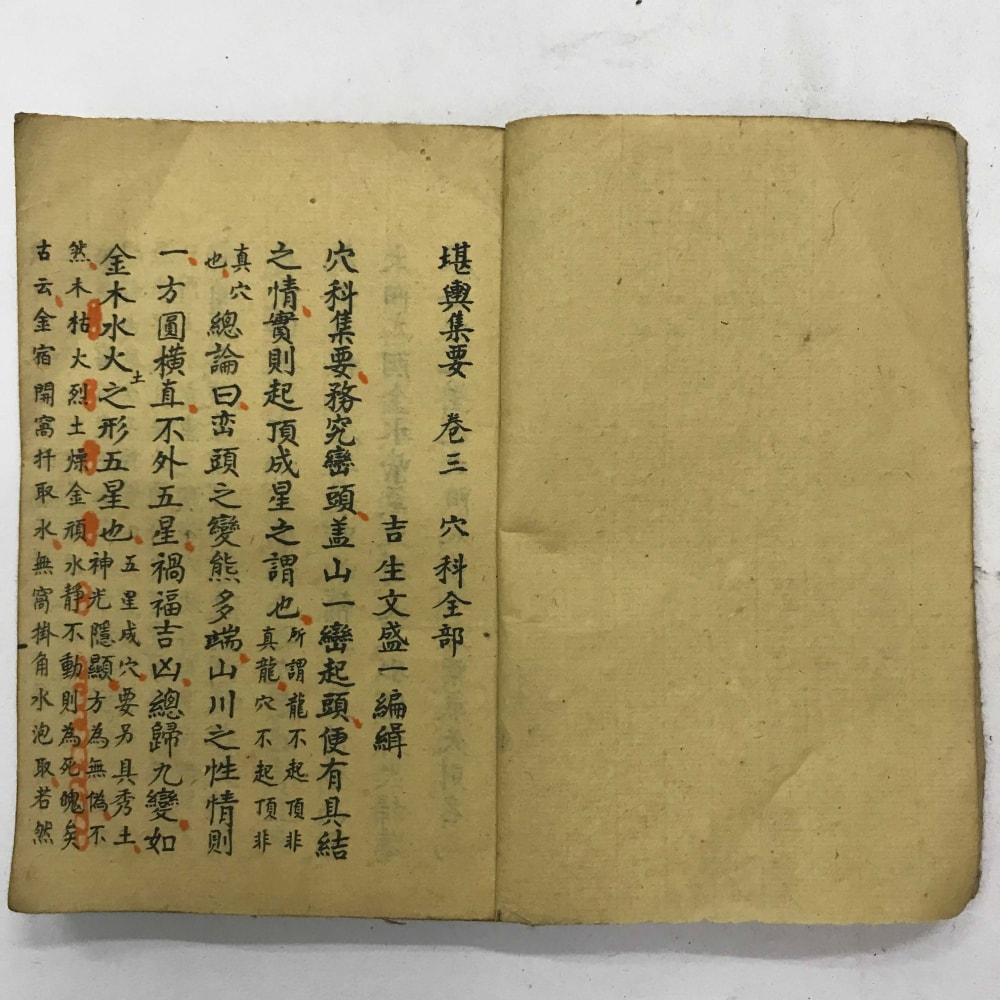 堪輿集要 卷三 穴科全部
吉生文盛一編緝
穴科集要務究巒頭盖山一巒起頭便有具結
之情實則起頂成星之謂也所謂龍不起頂非真龍穴不起頂非
真穴也總論曰峦頭之變熊多端山川之性情則
一方圓橫直不外五星禍福吉凶總歸九變如
金木水火土之形五星也五星成穴要另具秀土神光隱顯方為無偽不
然木枯火烈土燥金頑水靜不動則為死魄矣
古云金宿開窩扦取水無窩掛角水泡取若然